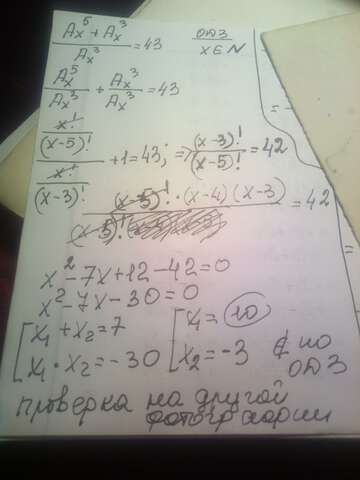 (Aₓ⁵ + Aₓ³) / Aₓ³ = 43   ОДЗ
x ∈ N
Aₓ⁵ / Aₓ³ + Aₓ³ / Aₓ³ = 43
(x! / (x-5)!) / (x! / (x-3)!) + 1 = 43; => (x-3)! / (x-5)! = 42
(x-5)! · (x-4)(x-3) / (x-5)! = 42
x² - 7x + 12 - 42 = 0
x² - 7x - 30 = 0
[ x₁ + x₂ = 7   [ x₁ = 10
x₁ · x₂ = -30   x₂ = -3 ∉ по
ОДЗ
проверка на другой
фотографии